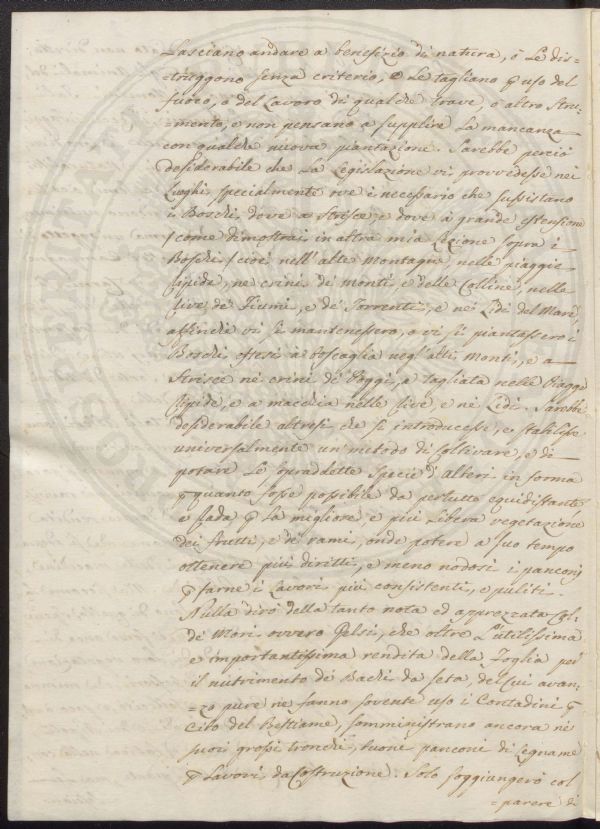 Lasciano andare a benefizio di natura, ò Le dis=
=truggono senza criterio, o Le tagliano p uso del
fuoco, o del Lavoro di qualche trave, o altro Stru=
=mento, e non pensano a supplire La mancanza
con qualche nuova piantazione. Sarebbe perciò
desiderabile che La Legislazione vi provvedesse nei
Luoghi specialmente ove è necessario che sussistano
i Boschi, dove a Strisce, e dove à grande estensione
(come dimostrai in altra mia Lezione sopra i
Boschi) cioè nell'alte Montagne, nelle piaggie
ripide, ne crini de monti, e delle Colline, nelle
rive de' Fiumi, e de' Torrenti, e nei Lidi del Mare,
affinchè vi si mantenessero, o vi si piantassero i
Boschi estesi à boscaglia negl'alti Monti, e a
Strisce nei crini de' Poggi, a tagliata nelle Piagge
ripide, e a macchia nelle rive, e ne Lidi. Sarebbe
desiderabile altresì che si introducesse, e stabilisse
universalmente un metodo di coltivare, e di
potare Le sopraddette Specie d'Alberi in forma
p quanto fosse possibile da pertutto equidistante
e p La migliore, e più Libera vegetazione
dei frutti, e di rami, onde potere a suo tempo
ottenere più diritti, e meno nodosi i panconi
p farne i Lavori più consistenti, e puliti.
Nulla dirò della tanto nota ed apprezzata Col.
de Mori ovvero Gelsi, che oltre L'utilissima
e importantissima rendita della Foglia per
il nutrimento de' Bachi da seta, del cui avan=
=zo pure ne fanno sovente uso i Contadini p
Cibo del Bestiame, somministrano ancora ne
suoi grossi tronchi, buone panconi di Legname
p Lavori da Costruzione. Solo soggiungerò col
=parere di